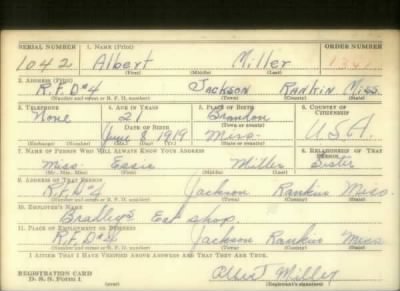 SERIAL NUMBER 1. NAME (Print) ORDER NUMBER
1042 Albert Miller 1341
(First) (Middle) (Last)
2. ADDRESS (Print)
R.F.D #4 Jackson Rankin Miss.
(Number and street or R. F. D. number) (Town) (County) (State)
3. TELEPHONE 4. AGE IN YEARS 5. PLACE OF BIRTH 6. COUNTRY OF CITIZENSHIP
None 21 Brandon
DATE OF BIRTH (Town or county)
June 8 1919 Miss. U.S.A.
(Exchange) (Number) (Mo.) (Day) (Yr.) (State or country)
7. NAME OF PERSON WHO WILL ALWAYS KNOW YOUR ADDRESS 8. RELATIONSHIP OF THAT PERSON
Miss Essie Miller Sister
(Mr., Mrs., Miss) (First) (Middle) (Last)
9. ADDRESS OF THAT PERSON
R.F.D #4 Jackson Rankin Miss.
(Number and street or R. F. D. number) (Town) (County) (State)
10. EMPLOYER'S NAME
Bradley's Eat shop.
11. PLACE OF EMPLOYMENT OR BUSINESS
R.F.D #4 Jackson Rankin Miss
(Number and street or R. F. D. number) (Town) (County) (State)
I AFFIRM THAT I HAVE VERIFIED ABOVE ANSWERS AND THAT THEY ARE TRUE.
REGISTRATION CARD
D. S. S. Form 1 (over) Albert Miller
(Registrant's signature)